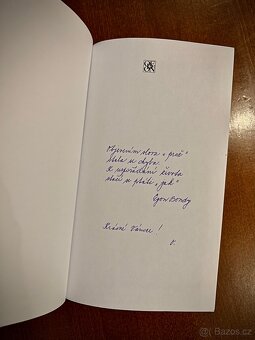 Objevením slova „proč“
stala se chyba
K uspořádání života
stačí se ptáti „jak“
Egon Bondy
Krásné Vánoce!
V.
Bazos.cz